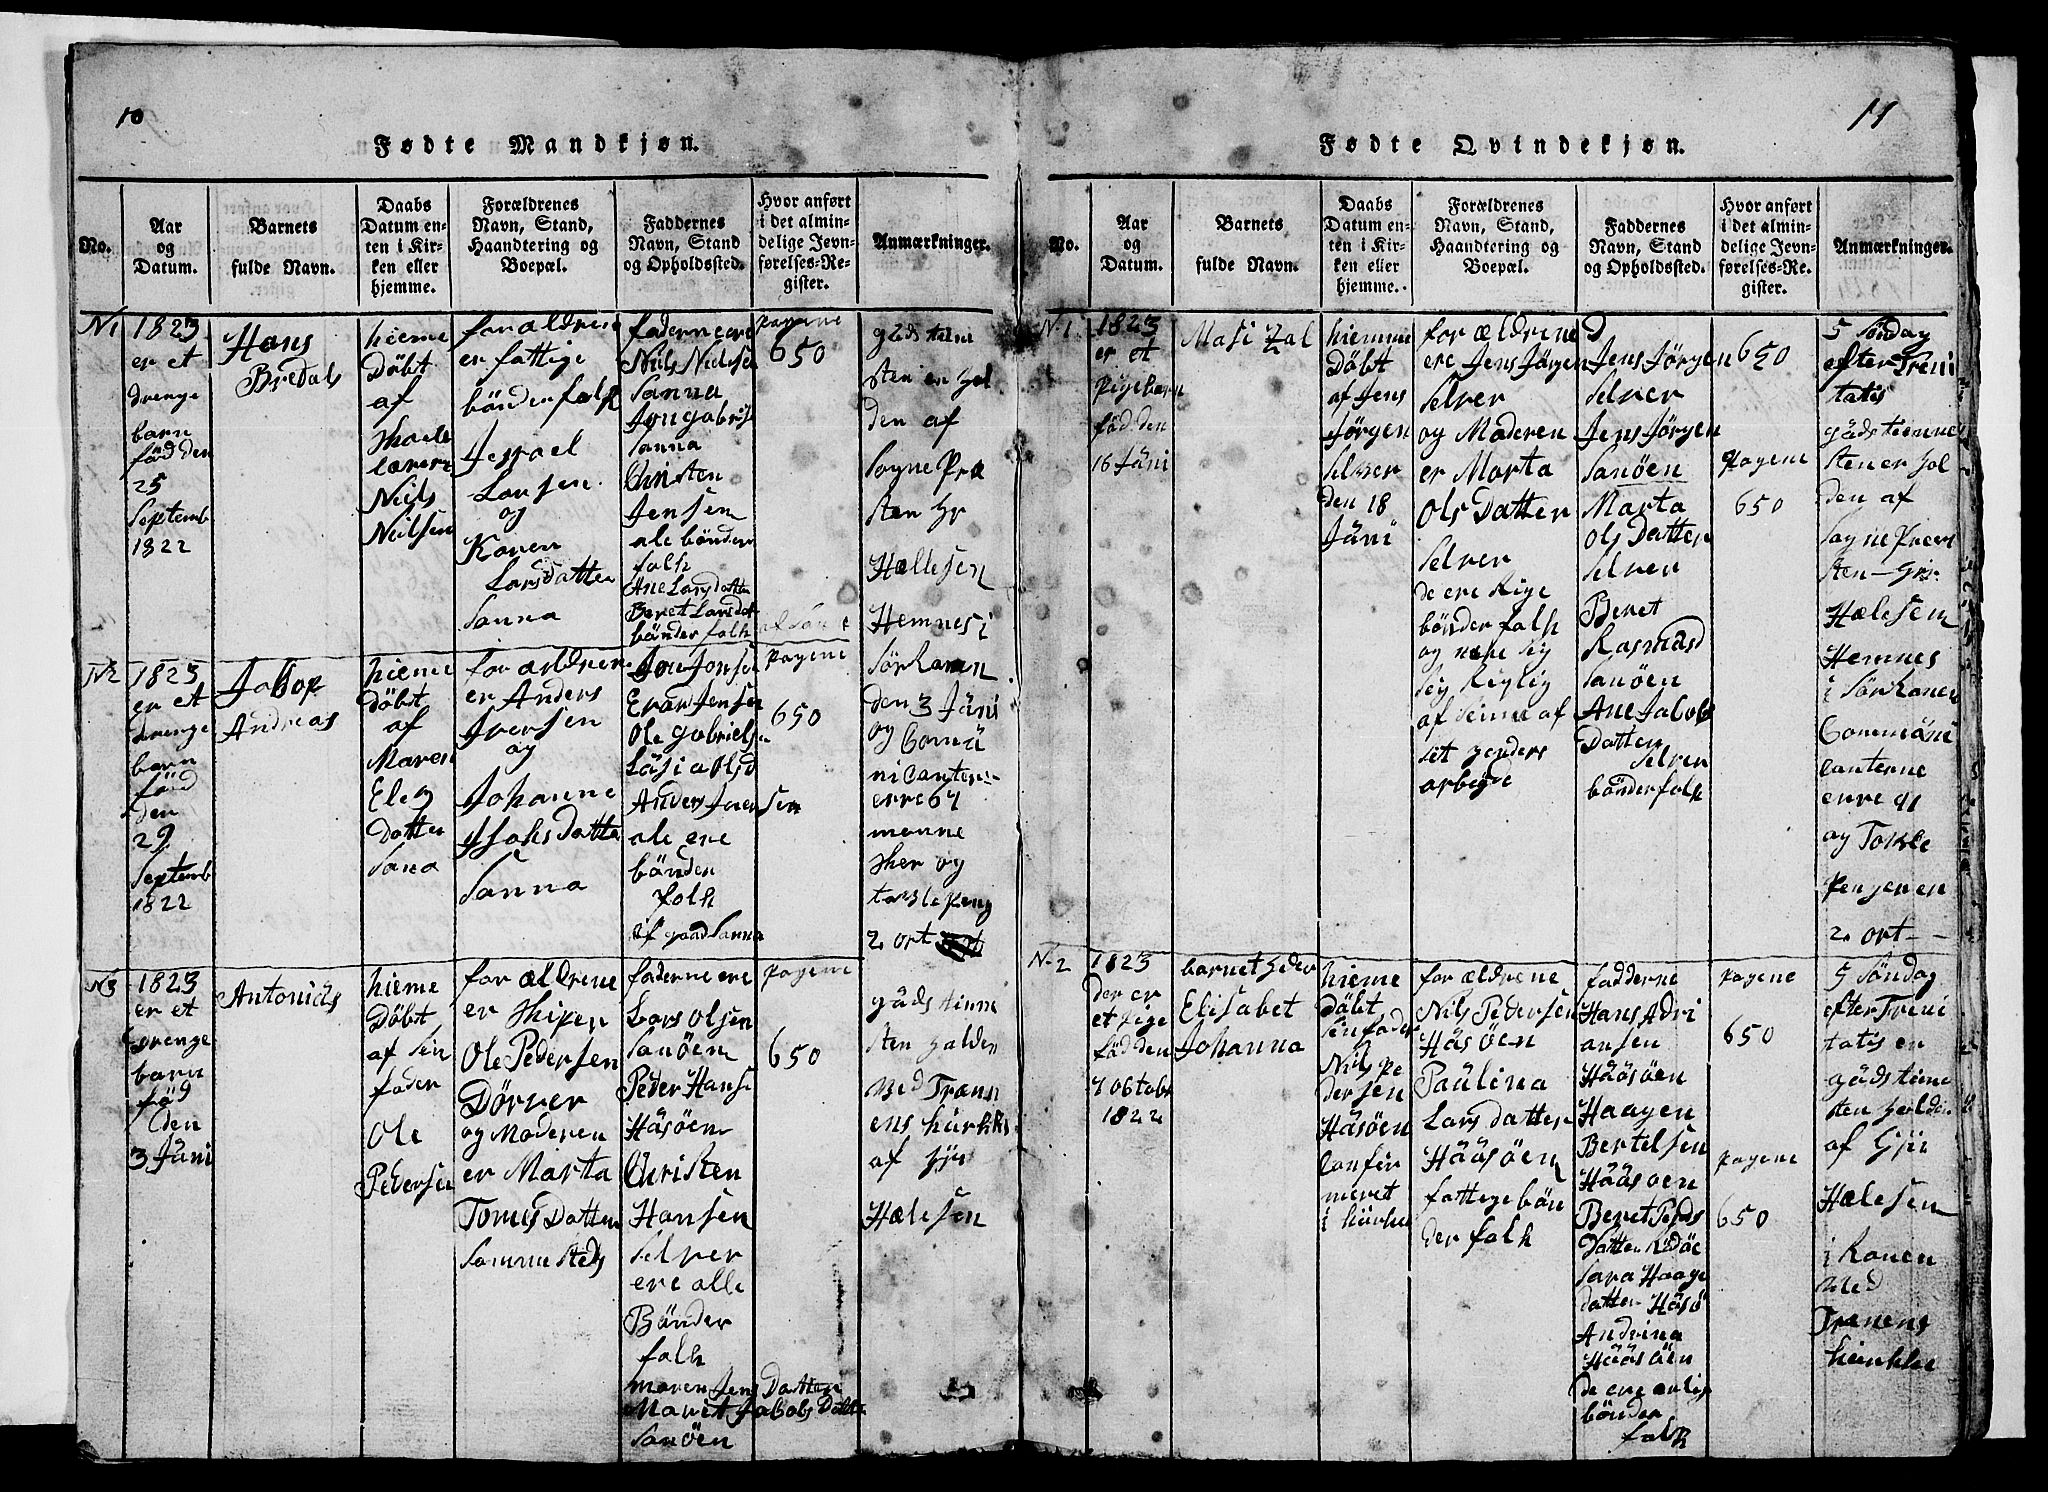 10
Fødte Mandkjøn.
No.
Aar
og
Datum.
Barnets
fulde Navn.
Daabs
Datum en-
ten i Kir-
ken eller
hjemme.
Forældrenes
Navn, Stand,
Haandtering og
Boepæl.
Faddernes
Navn, Stand
og Opholdssted.
Hvor anført
i det almin-
delige Jevn-
førelses-Re-
gister.
Anmærkninger.
N1
1823
er et
drenge
barn
föd den
25
Septemb
1822
Hans
Bredals
hieme
Döbt
af
Skole
lærer
Niels
Nielsen
for ældrene
er fattige
bönder folk
Jesrael
Larsen
og
Karen
Larsdatter
Sanna
faderne ere
Niels Nielsen
Sanna
Jon gabriels
Sanna
Christen
Jensen
ale bönder
folk
Ane Larsdatter
Beret Larsdat
bönder folk
pagene
650
guds tiene
sten er hol
den af
Sogne Præ
sten hr
Hallesen
Hemnes i
Sör Ranen
den 3 Jüni
og Comü
nicanter
erre 67
menne
sker og
tavle peng
2 ort
N2
1823
er et
drenge
barn
föd
den
29
Septemb
1822
Jakop
Andreas
hieme
Döbt
af
Maren
Eleg
Datter
Sana
for ældrene
er Anders
Iversen
og
Johanne
Isaks Datter
Sanna
Jon Jonsen
Evar Jensen
Ole gabriels
Lüsia Olsd
Anders Iversen
ale ere
bönder
folk
af gaard Sanna
pagene
650
N3
1823
er et
drenge
barn
föd
den
3 Jüni
Antonius
hieme
Döbt
af sin
fader
Ole
Pedersen
for ældrene
er Skiper
Ole Pedersen
Dörver
og Moderen
er Marta
Tomes Datter
Samme Steds
faderne ere
Lars Olsen
Sanöen
Peder Hanse
Hüsöen
Christen
Hansen
Selver
ere alle
Bönder
folk
maren Jens Datter
Marit Jakobs Datter
Sanöen
pagene
650
güds tiene
sten holden
ved Træn
ens kürkke
af hr
Halesen
11
Fødte Qvindekjøn.
No.
Aar
og
Datum.
Barnets
fulde Navn.
Daabs
Datum en-
ten i Kir-
ken eller
hjemme.
Forældrenes
Navn, Stand,
Haandtering og
Boepæl.
Faddernes
Navn, Stand
og Opholdssted.
Hvor anført
i det almin-
delige Jevn-
førelses-Re-
gister.
Anmærkninger.
N1
1823
er et
Pigebarn
föd den
16 Jüni
hiemme
Döbt
af Jens
Jörgen
Selver
den 18
Jüni
for ældrene
ere Jens Jörgen
Selver
og Moderen
er Marta
Ols Datter
Selver
de ere Rige
bönder folk
og nære sig
sig Riglig
af
set henders
arbeyde
Jens Jörgen
Selver
Jens Jörgen
Sanöen
Marta
Ols Datter
Selver
Beret
Rasmusd
Sanöen
Ane Jakobs
Datter
Selver
bönder folk
650
pagene
650
5 Söndag
efter Treni
tatis
güds tienne
sten er hol
den af
Sogne Præ
sten Hr
Halesen
Hemnes
i Sör Ranen
Commüni
canterne
erre 91
og Tavle
Pengen er
2 ort
N2
1823
der er
et Pige
föd den
7 Octobr
1822
barnet heder
Elisabet
Johanna
hieme
Döbt
sin fader
Nils Pe
dersen
Hüsöen
Confir
meret
i kürke
for ældrene
Nils Pedersen
Hüsöen
Paulina
Lars datter
Hüüsöen
fattige bön
der folk
fadderne
Hans Adri
ansen
Hüüsöen
Haagen
Bertelsen
Hüüsöen
Beret Peds
Datter
Sara Haage
datter Hüsö
Andrina
Hüüsöen
de ere
bönder
folk
pagene
650
pagene
650
5 Söndag
efter Treni
tatis er
güds tiene
sten holden
af Hr
Halesen
i Ranen
ved
Trænens
kürkke